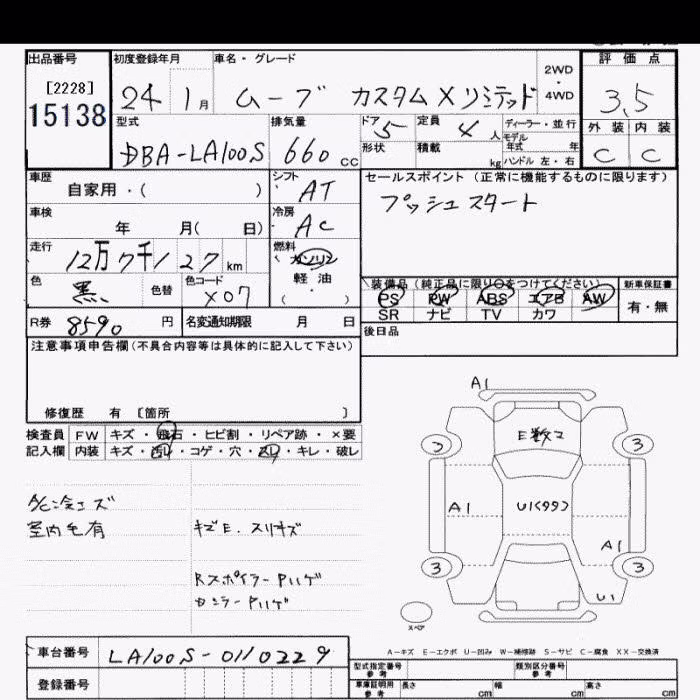 出品番号 初度登録年月 車名・グレード 評価点
[2228]
15138
24 1月 ムーブ カスタム X リミテッド 2WD・4WD 3.5
型式 排気量 ドア 定員 ディーラー・並行 外装 内装
DBA-LA100S 660cc 5 4人 モデル年式 年 C C
形状 積載 kg ハンドル 左・右
車歴 シフト セールスポイント(正常に機能するものに限ります)
自家用・( ) AT プッシュスタート
車検 冷房
年 月( 日) AC
走行 燃料
12万7千127km ガソリン
軽油
( )
色 色替 色コード 装備品(純正品に限り○をつけてください) 新車保証書
黒 X07 PS PW ABS エアB AW 有・無
SR ナビ TV カワ
R券 8590円 名変通知期限 月 日 後日品
注意事項申告欄(不具合内容等は具体的に記入して下さい)
修復歴 有 〔箇所 〕
検査員 FW キズ・飛石・ヒビ割・リペア跡・×要
記入欄 内装 キズ・汚れ・コゲ・穴・スレ・キレ・破レ
A/C冷エズ
室内毛有 キズE. スリキズ
Rスポイラー Pハゲ
Pハゲ
A1
E数2
3 3
A1 U1(99)
A1
3 3
U1
スペア
A-キズ E-エクボ U-凹み W-補修跡 S-サビ C-腐食 XX-交換済
車台番号 LA100S-0110229
登録番号
型式指定番号 参考 類別区分番号 参考
車庫証明用 参考 長さ cm 幅 cm 高さ cm